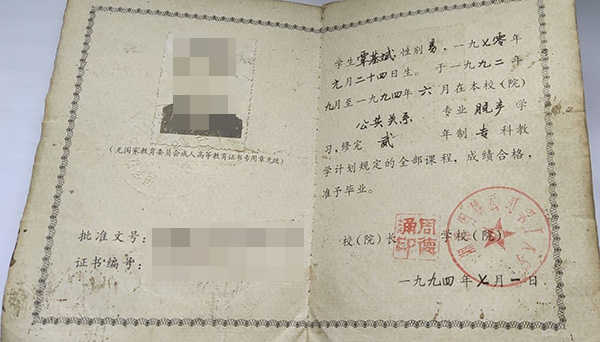 (无国家教育委员会成人高等教育证书专用章无效)
批准文号:
证书编号:
学生覃基斌性别男,一九七零年
九月二十四日生。于一九九二年
九月至一九九四年六月在本校(院)
公共关系专业脱产学
习,修完贰年制专科教
学计划规定的全部课程,成绩合格,
准予毕业。
校(院)长 周德涌印 学校(院)
一九九四年七月一日